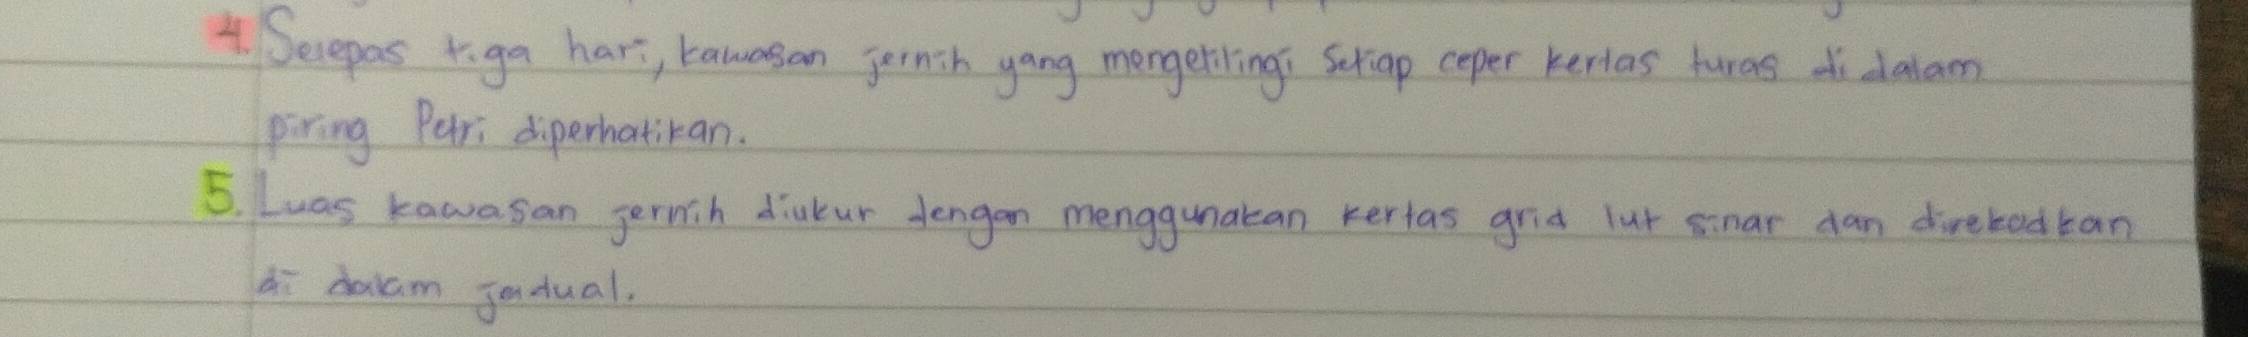 4. Selepas tiga hari, kawasan jernih yang mengelilingi setiap ceper kertas turas di dalam
piring Petri diperhatikan.
5. Luas kawasan jernih diukur dengan menggunakan kertas grid lut sinar dan direkodkan
di dalam jadual.